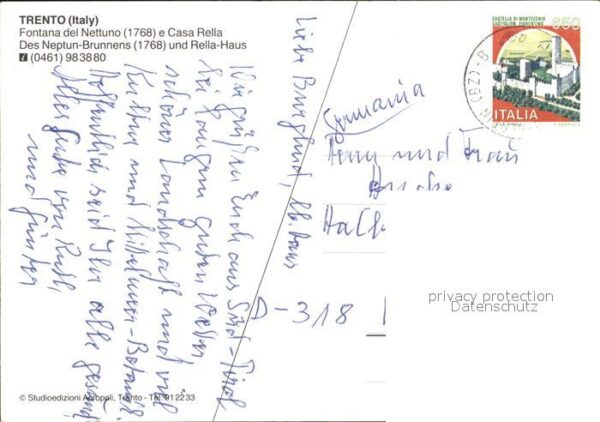 TRENTO (Italy)
Fontana del Nettuno (1768) e Casa Rella
Des Neptun-Brunnens (1768) und Rella-Haus
(0461) 983880
CASTELLO DI MONTECCHIO
CASTIGLION FIORENTINO
650
ITALIA
(BZ)
Germania
und Frau
D-318
Liebe
Wir grüßen Euch aus Süd-Tirol
bei gutem Wetter
schöner Landschaft und viel
Kultur und
Hoffentlich seid Ihr alle gesund
Alles Gute von Ruth
und Günter
privacy protection
Datenschutz
© Studioedizioni Acropoli, Trento - Tel. 912233